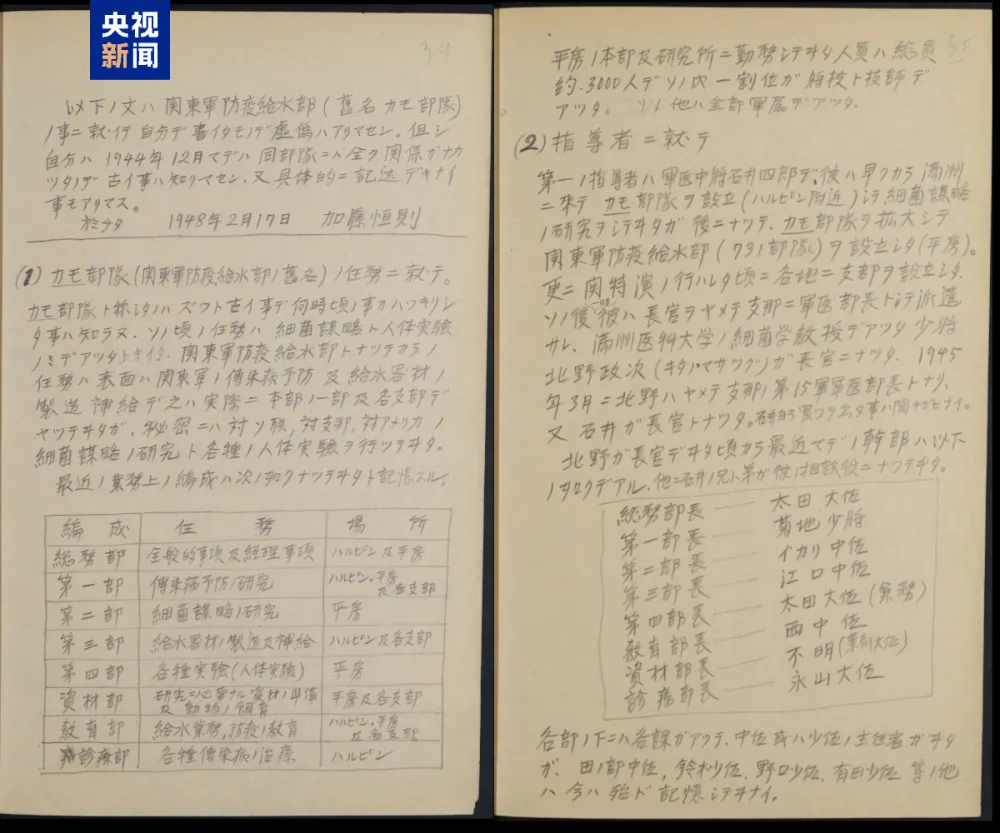 央视
新闻
34
以下ノ文ハ関東軍防疫給水部(舊名カモ部隊)
ノ事ニ就イテ自分デ書イタモノデ虚偽ハアリマセン。但シ
自分ハ1944年12月マデハ同部隊ニハ全ク関係ガナカ
ツタノデ古イ事ハ知リマセン、又具体的ニ記述デキナイ
事モアリマス。
於チタ 1948年2月17日 加藤恒則
(1) カモ部隊(関東軍防疫給水部ノ舊名)ノ任務ニ就テ。
カモ部隊ト称シタハズツト古イ事デ何時頃ノ事カハツキリシ
タ事ハ知ラヌ. ソノ頃ノ任務ハ細菌謀略ト人体実験
ノミデアツタトキイタ. 関東軍防疫給水部トナツテカラノ
任務ハ表面ハ関東軍ノ傳染病予防及給水器材ノ
製造補給デ之ハ実際ニ本部ノ一部及各支部デ
ヤツテヰタガ、秘密ニハ対ソ聯,対支那,対アメリカノ
細菌謀略ノ研究ト各種ノ人体実験ヲ行ツテヰタ。
最近ノ業務上ノ編成ハ次ノ如クナツテヰタト記憶スル。
編成 任務 場所
総務部 全般的事項及経理事項 ハルピン及平房
第一部 傳染病予防ノ研究 ハルピン、平房及各支部
第二部 細菌謀略ノ研究 平房
第三部 給水器材ノ製造及補給 ハルピン及各支部
第四部 各種実験(人体実験) 平房
資材部 研究ニ必要ナル資材ノ準備及動物ノ飼育 平房及各支部
教育部 給水業務,防疫ノ教育 ハルピン、平房及各支部
診療部 各種傳染病ノ治療 ハルピン
35
平房ノ本部及研究所ニ勤務シテヰタ人員ハ総員
約.3000人デソノ内一割位ガ将校ト技師デ
アツタ。ソノ他ハ全部軍属デアツタ.
(2) 指導者ニ就テ
第一ノ指導者ハ軍医中将石井四郎デ,彼ハ早クカラ満州
ニ来テカモ部隊ヲ設立(ハルピン附近)シテ細菌謀略
ノ研究ヲシテヰタガ後ニナツテ、カモ部隊ヲ拡大シテ
関東軍防疫給水部(731部隊)ヲ設立シタ(平房)。
更ニ関特演ノ行ハレタ頃ニ各地ニ支部ヲ設立シタ.
ソノ後彼ハ長官ヲヤメテ支那ニ軍医部長トシテ派遣
サレ、満洲医科大学ノ細菌学教授デアツタ少将
北野政次(キタノマサツグ)ガ長官ニナツタ. 1945
年3月ニ北野ハヤメテ支那ノ第15軍軍医部長トナリ、
又石井ガ長官トナツタ。
北野ガ長官デヰタ頃カラ最近マデノ幹部ハ以下
ノ如クデアル.他ニ石井ノ兄ト弟ガ彼ノ相談役ニナツテヰタ。
総務部長 太田大佐
第一部長 菊地少将
第二部長 イカリ中佐
第三部長 江口中佐
第四部長 太田大佐(兼務)
教育部長 西中佐
資材部長 不明(薬剤大佐)
診療部長 永山大佐
各部ノ下ニハ各課ガアツテ、中佐或ハ少佐ノ主任者ガヰタ
ガ、田ノ部中佐,鈴木少佐、野口少佐、有田少佐等ノ他
ハ今ハ殆ド記憶シテヰナイ。